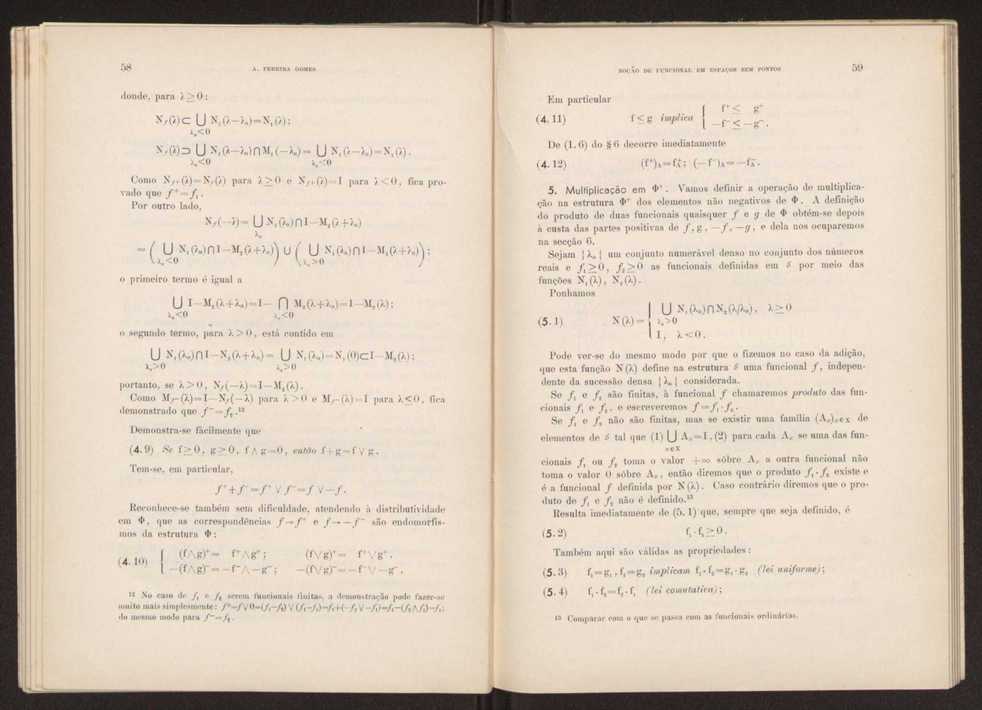 58
A. PEREIRA GOMES
donde, para λ≥0:
N_f(λ)⊂ ⋃_{λ_n<0} N_1(λ−λ_n)=N_1(λ);
N_f(λ)⊃ ⋃_{λ_n<0} N_1(λ−λ_n)∩M_2(−λ_n)= ⋃_{λ_n<0} N_1(λ−λ_n)=N_1(λ).
Como N_{f+}(λ)=N_f(λ) para λ≥0 e N_{f+}(λ)=I para λ<0, fica pro-
vado que f⁺=f_1.
Por outro lado,
N_f(−λ)= ⋃_{λ_n} N_1(λ_n)∩I−M_2(λ+λ_n)
=( ⋃_{λ_n<0} N_1(λ_n)∩I−M_2(λ+λ_n)) ∪ ( ⋃_{λ_n>0} N_1(λ_n)∩I−M_2(λ+λ_n));
o primeiro termo é igual a
⋃_{λ_n<0} I−M_2(λ+λ_n)=I− ⋂_{λ_n<0} M_2(λ+λ_n)=I−M_2(λ);
o segundo termo, para λ>0, está contido em
⋃_{λ_n>0} N_1(λ_n)∩I−N_2(λ+λ_n)= ⋃_{λ_n>0} N_1(λ_n)=N_1(0)⊂I−M_2(λ);
portanto, se λ>0, N_f(−λ)=I−M_2(λ).
Como M_{f−}(λ)=I−N_f(−λ) para λ>0 e M_{f−}(λ)=I para λ≤0, fica
demonstrado que f⁻=f_2.¹²
Demonstra-se fàcilmente que
(4.9) Se f≥0, g≥0, f∧g=0, então f+g=f∨g.
Tem-se, em particular,
f⁺+f⁻=f⁺∨f⁻=f∨−f.
Reconhece-se também sem dificuldade, atendendo à distributividade
em Φ, que as correspondências f→f⁺ e f→−f⁻ são endomorfis-
mos da estrutura Φ:
(4.10) { (f∧g)⁺= f⁺∧g⁺; (f∨g)⁺= f⁺∨g⁺.
−(f∧g)⁻=−f⁻∧−g⁻; −(f∨g)⁻=−f⁻∨−g⁻.
¹² No caso de f_1 e f_2 serem funcionais finitas, a demonstração pode fazer-se
muito mais simplesmente: f⁺=f∨0=(f_1−f_2)∨(f_1−f_1)=f_1+(−f_2∨−f_1)=f_1−(f_2∧f_1)=f_1;
do mesmo modo para f⁻=f_2.
NOÇÃO DE FUNCIONAL EM ESPAÇOS SEM PONTOS
59
Em particular
(4.11) f≤g implica { f⁺≤ g⁺
−f⁻≤−g⁻.
De (1.6) do § 6 decorre imediatamente
(4.12) (f⁺)_λ=f_λ⁺; (−f⁻)_λ=−f_λ⁻.
5. Multiplicação em Φ⁺. Vamos definir a operação de multiplica-
ção na estrutura Φ⁺ dos elementos não negativos de Φ. A definição
do produto de duas funcionais quaisquer f e g de Φ obtém-se depois
à custa das partes positivas de f, g, −f, −g, e dela nos ocuparemos
na secção 6.
Sejam {λ_n} um conjunto numerável denso no conjunto dos números
reais e f_1≥0, f_2≥0 as funcionais definidas em 𝓔 por meio das
funções N_1(λ), N_2(λ).
Ponhamos
(5.1) N(λ)= { ⋃_{λ_n>0} N_1(λ_n)∩N_2(λ/λ_n), λ≥0
I, λ<0.
Pode ver-se do mesmo modo por que o fizemos no caso da adição,
que esta função N(λ) define na estrutura 𝓔 uma funcional f, indepen-
dente da sucessão densa {λ_n} considerada.
Se f_1 e f_2 são finitas, à funcional f chamaremos produto das fun-
cionais f_1 e f_2, e escreveremos f=f_1·f_2.
Se f_1 e f_2 não são finitas, mas se existir uma família (A_x)_{x∈X} de
elementos de 𝓔 tal que (1) ⋃_{x∈X} A_x=I, (2) para cada A_x se uma das fun-
cionais f_1 ou f_2 toma o valor +∞ sôbre A_x a outra funcional não
toma o valor 0 sôbre A_x, então diremos que o produto f_1·f_2 existe e
é a funcional f definida por N(λ). Caso contrário diremos que o pro-
duto de f_1 e f_2 não é definido.¹³
Resulta imediatamente de (5.1) que, sempre que seja definido, é
(5.2) f_1·f_2≥0.
Também aqui são válidas as propriedades:
(5.3) f_1=g_1, f_2=g_2 implicam f_1·f_2=g_1·g_2 (lei uniforme);
(5.4) f_1·f_2=f_2·f_1 (lei comutativa);
¹³ Comparar com o que se passa com as funcionais ordinárias.